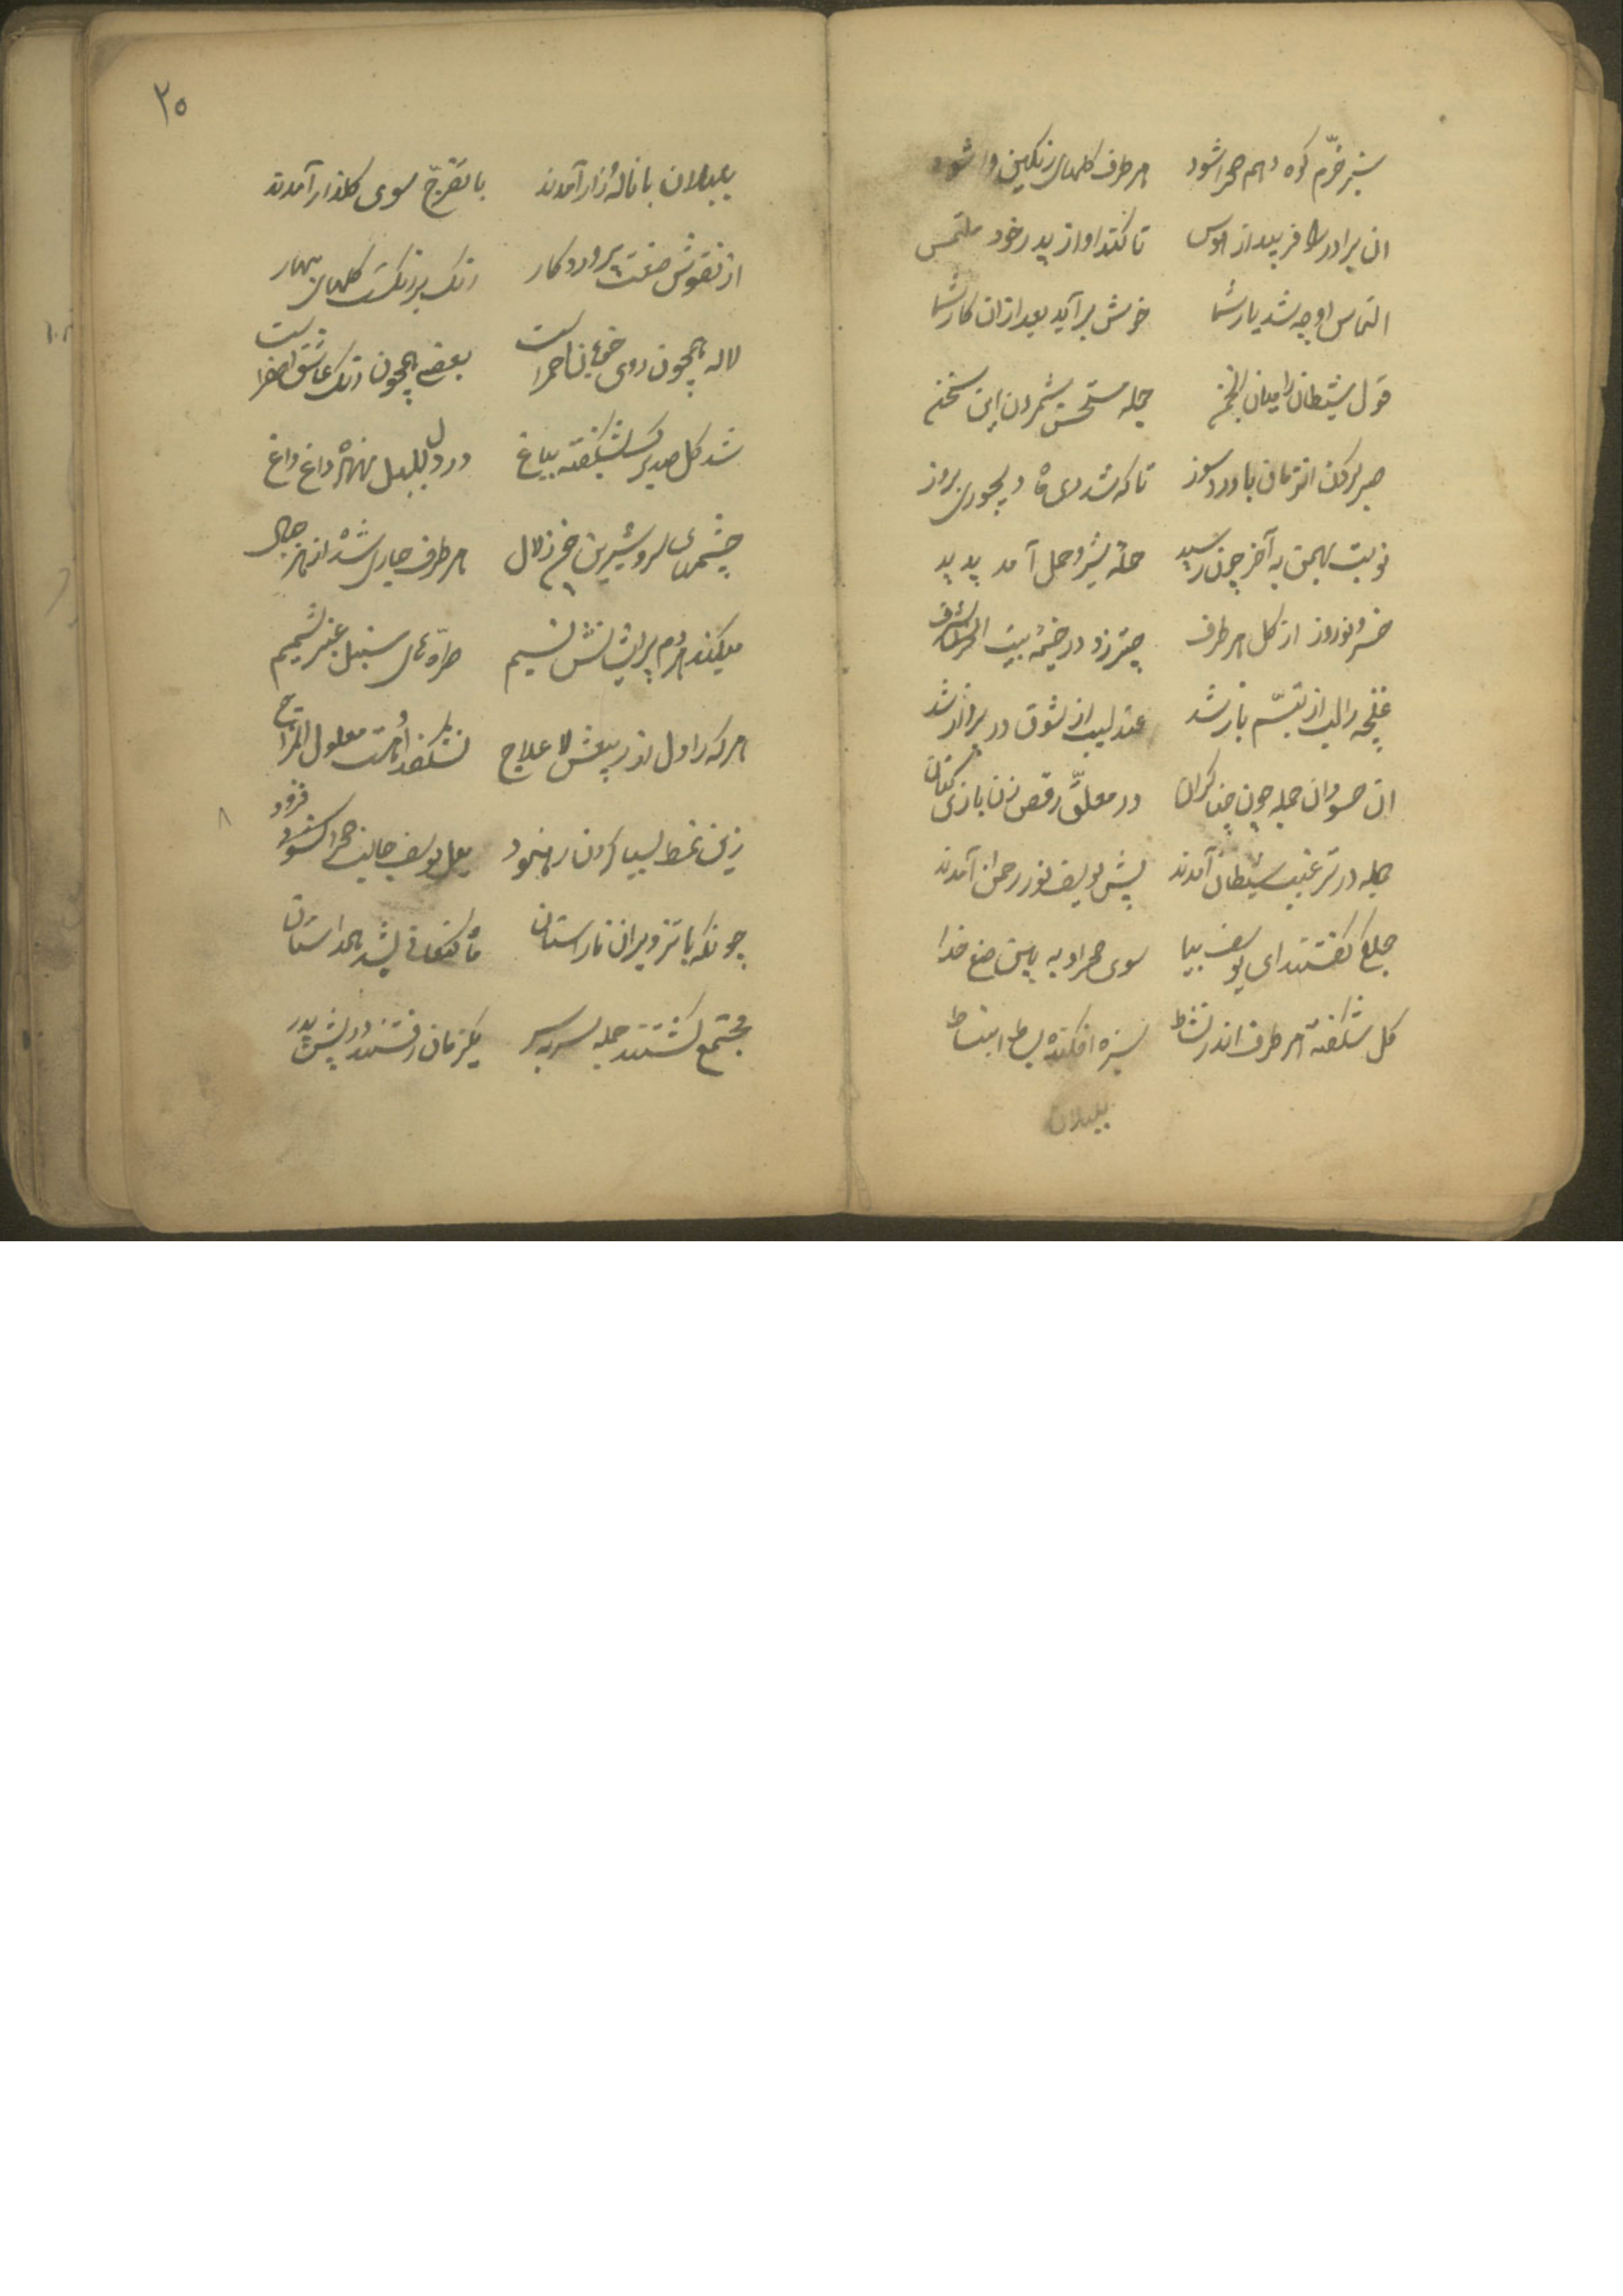 سبز خرّم کوه و هم صحرا شود هر طرف کلهای رنکین وا شود
ان برادر را فریبید از هوس تا کند او از پدر خود ملتمس
التماس او چه شد یار شما خوش برآید بعد از ان کار شما
قول شیطان را میان انجمن جمله مستحسن شمردن این سخن
صبر کردن انزمان با درد و سوز تا که شد دی ماه دیجوری بروز
نوبت بهمن به آخر چون رسید حله پیش و حمل آمد پدید
خسرو نوروز از کل هر طرف چتر زد در خیمهٔ بیت الشرف
غنچه را لب از تبسّم باز شد عندلیب از شوق در پرواز شد
ان حسودان جمله چون در معلّق رقص زن بازی کنان
جمله در ترغیب شیطان آمدند پیش یوسف نور رحمن آمدند
جملع کفتند ای یوسف بیا سوی صحرا و به بین صنع خدا
کل شکفته هر طرف اندر نشاط سبزه افکنده بساط انبساط
بلبلان
۲۵
بلبلان با نالهٔ زار آمدند با تفرّج سوی کلذار آمدند
از نقوش صنعت پروردکار رنک برنکست کلهای بهار
لاله همچون روی حمراست بعضی همچون رنک عاشق اصفراست
شد کل صد برک بشکفته بباغ در دل بلبل نهاده داغ داغ
چشمهای سرد و شیرین زلال هر طرف جاری شده از هر جبال
میکند هر دم پریشانش نسیم طره های سنبل عنبر شمیم
هر که را دل لا علاج نشکفد معلول المزاج
زین نمط بسیار کردن رهنمود میل یوسف جانب صحرا فزود
چونکه با تزویر ان ناراستان ماه کنعانی بشد همداستان
مجتمع کشتند جمله سر بسر یکزمان رفتند در پیش پدر
۸